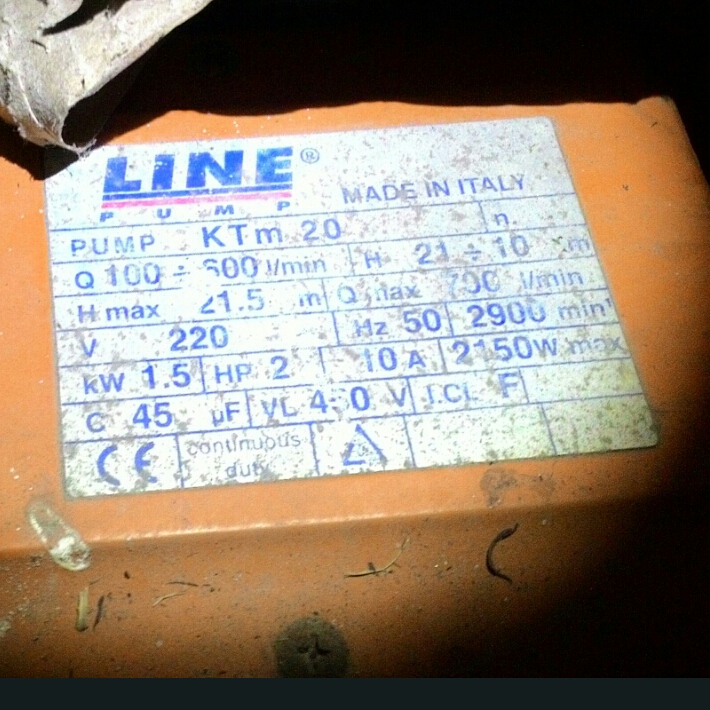 LINE®
PUMP
MADE IN ITALY
PUMP KTm 20 n
Q 100 ÷ 600 l/min H 21 ÷ 10 m
H max 21.5 m Q max 700 l/min
V 220 Hz 50 2900 min¹
kW 1.5 HP 2 10 A 2150W max
C 45 µF VL 450 V I.CL F
CE continuous duty